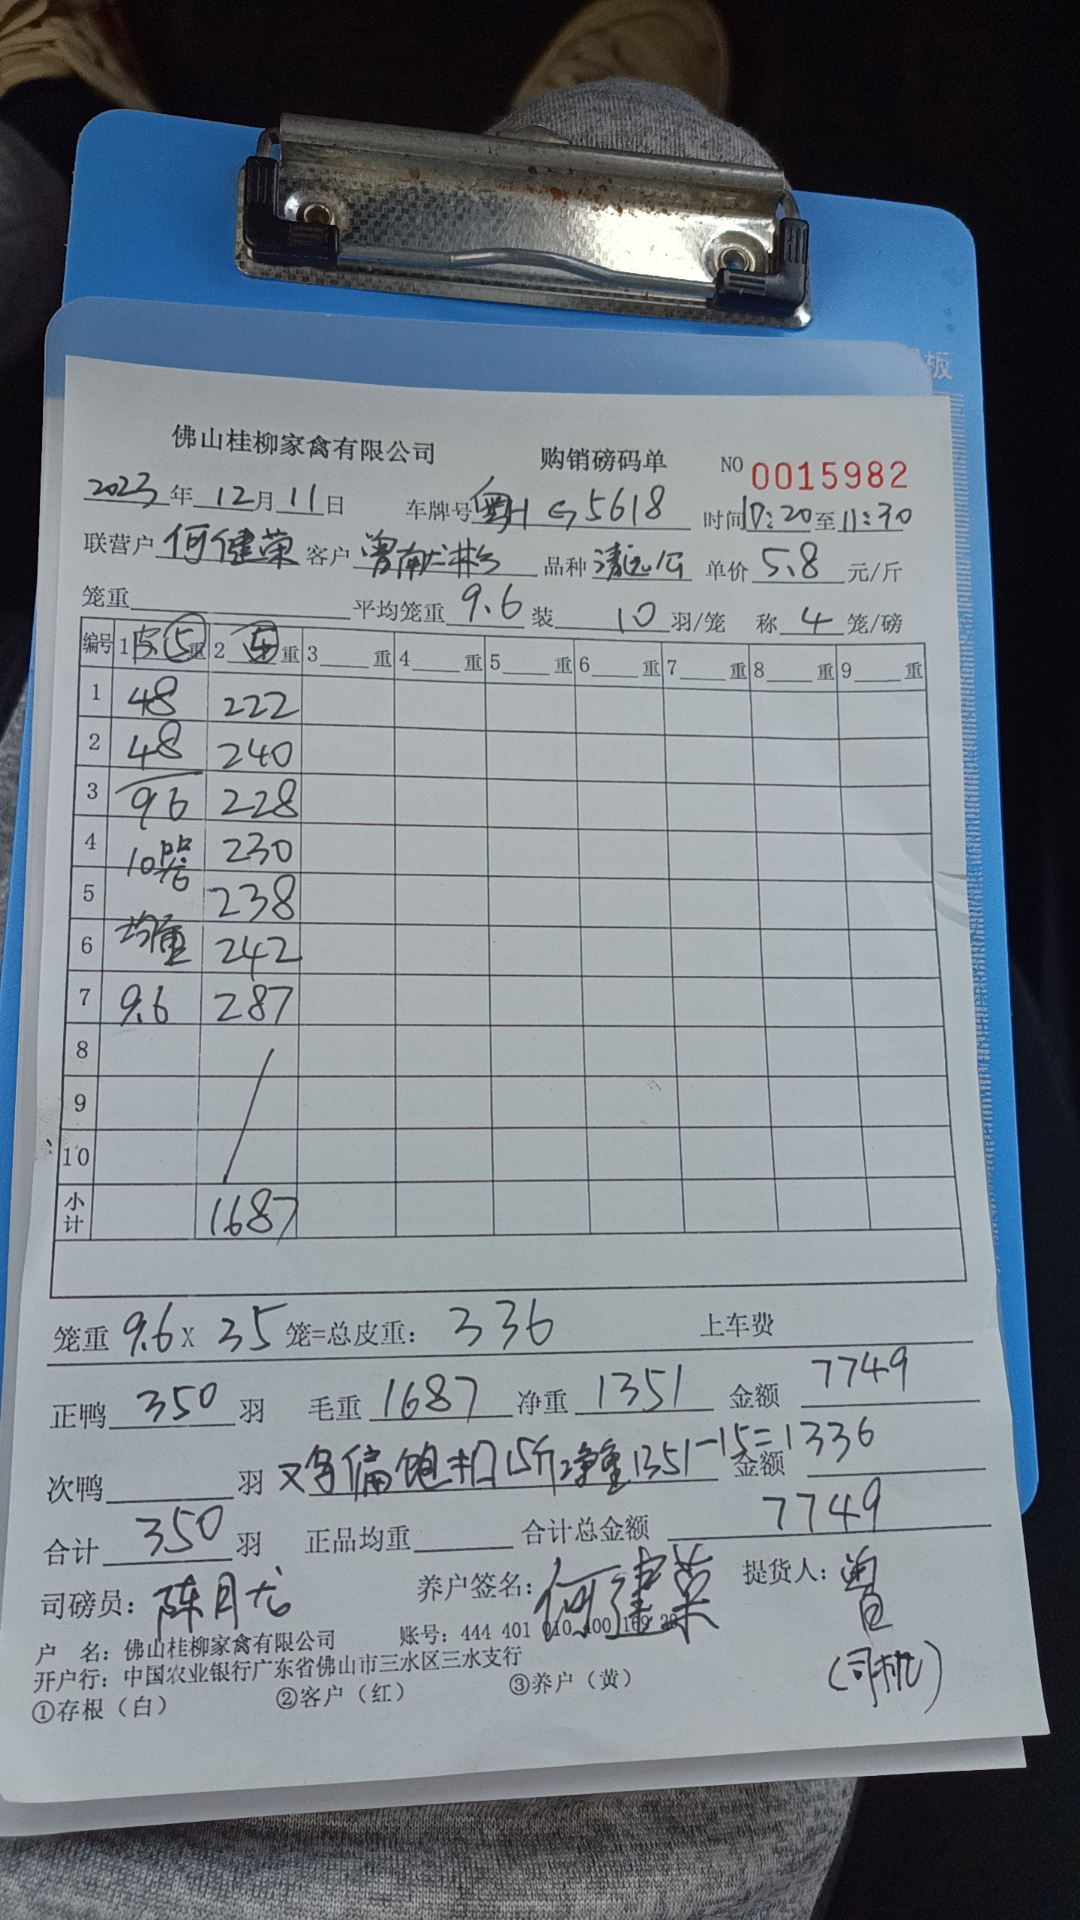 板
佛山桂柳家禽有限公司 购销磅码单 NO 0015982
2023年12月11日 车牌号 粤H G5618 时间 17:20至11:30
联营户 何健荣 客户 曾南龙彬 品种 清远公 单价 5.8 元/斤
笼重 平均笼重 9.6 装 10 羽/笼 称 4 笼/磅
编号 1 皮 5 重 2 5 重 3 重 4 重 5 重 6 重 7 重 8 重 9 重
1 48 222
2 48 240
3 96 228
4 10器 230
5 238
6 均重 242
7 9.6 287
8
9
10
小计 1687
笼重 9.6 X 35 笼=总皮重: 336 上车费
正鸭 350 羽 毛重 1687 净重 1351 金额 7749
次鸭 羽 又鸡偏饱扣15斤净重1351-15=1336 金额
合计 350 羽 正品均重 合计总金额 7749
司磅员: 陈月龙 养户签名: 何健荣 提货人: 曾
(司机)
户 名: 佛山桂柳家禽有限公司 账号: 444 401 010 400
开户行: 中国农业银行广东省佛山市三水区三水支行
①存根（白） ②客户（红） ③养户（黄）